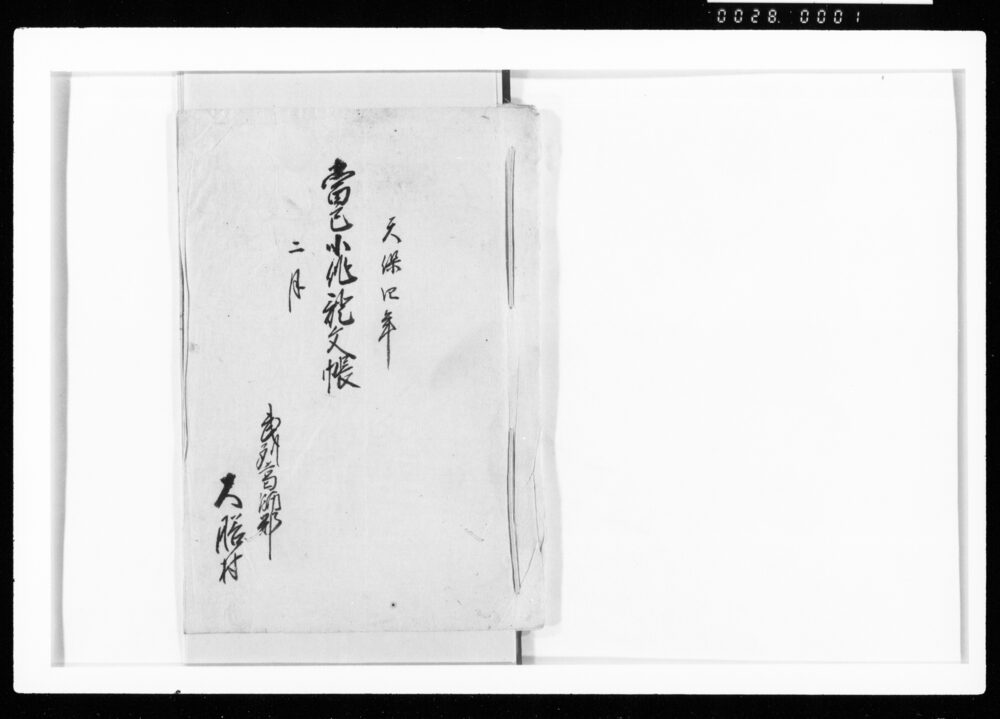 0028. 0001
天保四年
當巳小作證文帳
二月
武州葛飾郡
大膳村